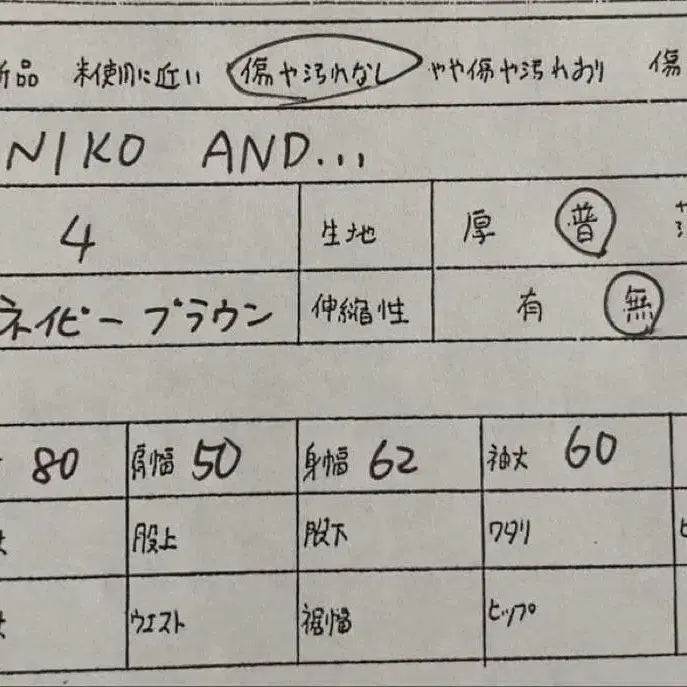 新品 未使用に近い 傷や汚れなし やや傷や汚れあり 傷
NIKO AND...
4 生地 厚 普
ネイビー ブラウン 伸縮性 有 無
80 肩幅 50 身幅 62 袖丈 60
股上 股下 ワタリ
ウエスト 裾幅 ヒップ